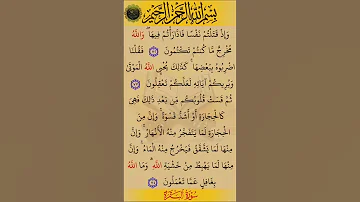 بِسْمِ اللَّهِ الرَّحْمَنِ الرَّحِيمِ
وَإِذْ قَتَلْتُمْ نَفْسًا فَادَّارَأْتُمْ فِيهَا وَاللَّهُ
مُخْرِجٌ مَّا كُنتُمْ تَكْتُمُونَ فَقُلْنَا
اضْرِبُوهُ بِبَعْضِهَا كَذَلِكَ يُحْيِي اللَّهُ الْمَوْتَى
وَيُرِيكُمْ آيَاتِهِ لَعَلَّكُمْ تَعْقِلُونَ
ثُمَّ قَسَتْ قُلُوبُكُم مِّن بَعْدِ ذَلِكَ فَهِيَ
كَالْحِجَارَةِ أَوْ أَشَدُّ قَسْوَةً وَإِنَّ مِنَ
الْحِجَارَةِ لَمَا يَتَفَجَّرُ مِنْهُ الْأَنْهَارُ وَإِنَّ
مِنْهَا لَمَا يَشَّقَّقُ فَيَخْرُجُ مِنْهُ الْمَاءُ وَإِنَّ
مِنْهَا لَمَا يَهْبِطُ مِنْ خَشْيَةِ اللَّهِ وَمَا اللَّهُ
بِغَافِلٍ عَمَّا تَعْمَلُونَ
سُورَةُ الْبَقَرَةِ